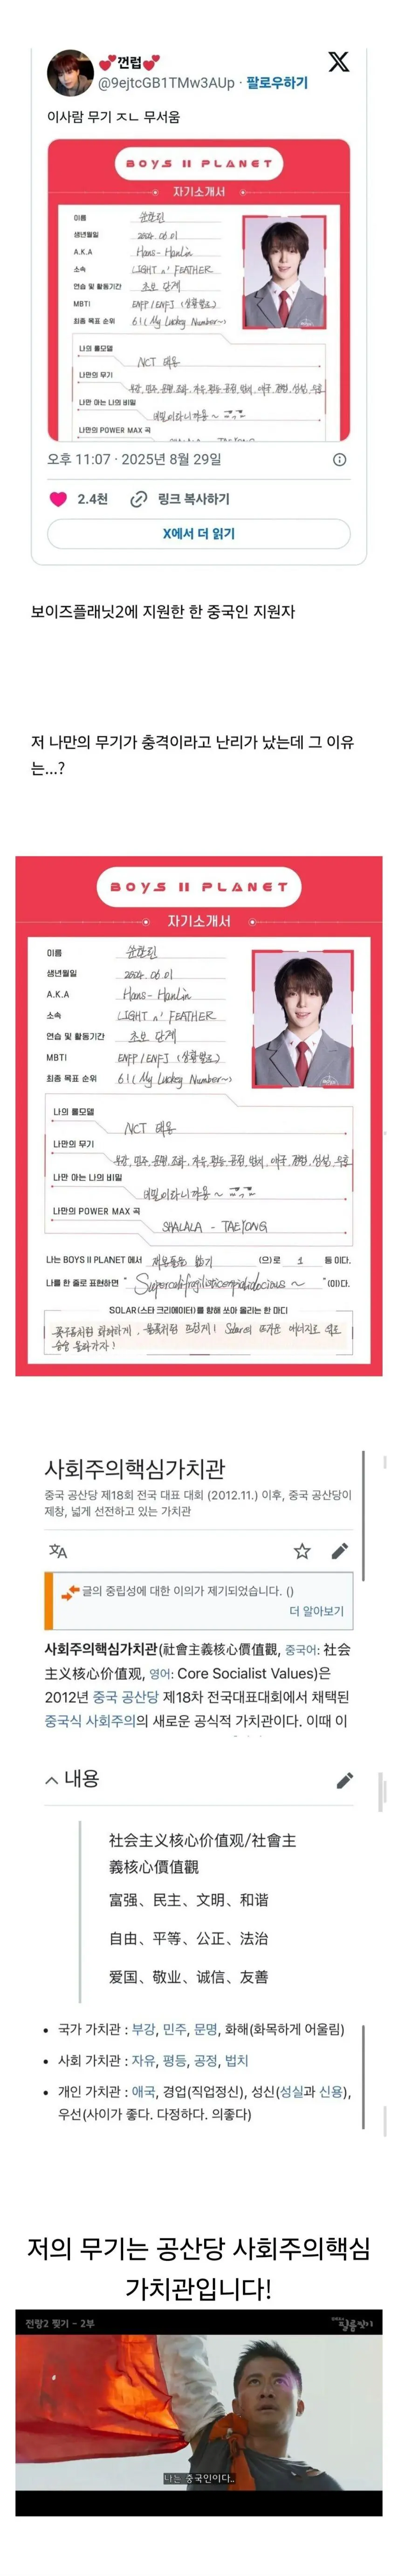 💕껀럽💕
@9ejtcGB1TMw3AUp · 팔로우하기
이사람 무기 ㅈㄴ 무서움
BOYS II PLANET
자기소개서
이름 순한린
생년월일 2004. 06. 01
A.K.A Hans-Hanlin
소속 LIGHT n' FEATHER
연습 및 활동기간 초보 단계
MBTI ENFP / ENFJ (상황별로)
최종 목표 순위 6! ( My Lucky Number~)
나의 롤모델
NCT 태용
나만의 무기
부강, 민주, 문명, 조화, 자유, 평등, 공정, 법치, 애국, 경업, 성신, 우호
나만 아는 나의 비밀
비밀이라니까용~
나만의 POWER MAX 곡
SHALALA - TAEYONG
오후 11:07 · 2025년 8월 29일
2.4천 링크 복사하기
X에서 더 읽기
보이즈플래닛2에 지원한 한 중국인 지원자
저 나만의 무기가 충격이라고 난리가 났는데 그 이유
는...?
BOYS II PLANET
자기소개서
이름 순한린
생년월일 2004. 06. 01
A.K.A Hans-Hanlin
소속 LIGHT n' FEATHER
연습 및 활동기간 초보 단계
MBTI ENFP / ENFJ (상황별로)
최종 목표 순위 6! ( My Lucky Number~)
나의 롤모델
NCT 태용
나만의 무기
부강, 민주, 문명, 조화, 자유, 평등, 공정, 법치, 애국, 경업, 성신, 우호
나만 아는 나의 비밀
비밀이라니까용~
나만의 POWER MAX 곡
SHALALA - TAEYONG
나는 BOYS II PLANET 에서 (으)로 1 등 이다.
나를 한 줄로 표현하면 " Supercalifragilisticexpialidocious ~ "(이)다.
SOLAR(스타 크리에이터)를 향해 쏘아 올리는 한 마디
꽃구름처럼 화려하게, 불꽃처럼 뜨겁게! Solar의 뜨거운 에너지로 위로
슝슝 올라가자!
사회주의핵심가치관
중국 공산당 제18회 전국 대표 대회 (2012.11.) 이후, 중국 공산당이
제창, 넓게 선전하고 있는 가치관
글의 중립성에 대한 이의가 제기되었습니다. ()
더 알아보기
사회주의핵심가치관(社會主義核心價值觀, 중국어: 社会
主义核心价值观, 영어: Core Socialist Values)은
2012년 중국 공산당 제18차 전국대표대회에서 채택된
중국식 사회주의의 새로운 공식적 가치관이다. 이때 이
내용
社会主义核心价值观/社會主
義核心價值觀
富强、民主、文明、和谐
自由、平等、公正、法治
爱国、敬业、诚信、友善
• 국가 가치관 : 부강, 민주, 문명, 화해(화목하게 어울림)
• 사회 가치관 : 자유, 평등, 공정, 법치
• 개인 가치관 : 애국, 경업(직업정신), 성신(성실과 신용),
우선(사이가 좋다. 다정하다. 의좋다)
저의 무기는 공산당 사회주의핵심
가치관입니다!
전랑2 찢기 - 2부
필름찢기
나는 중국인이다..